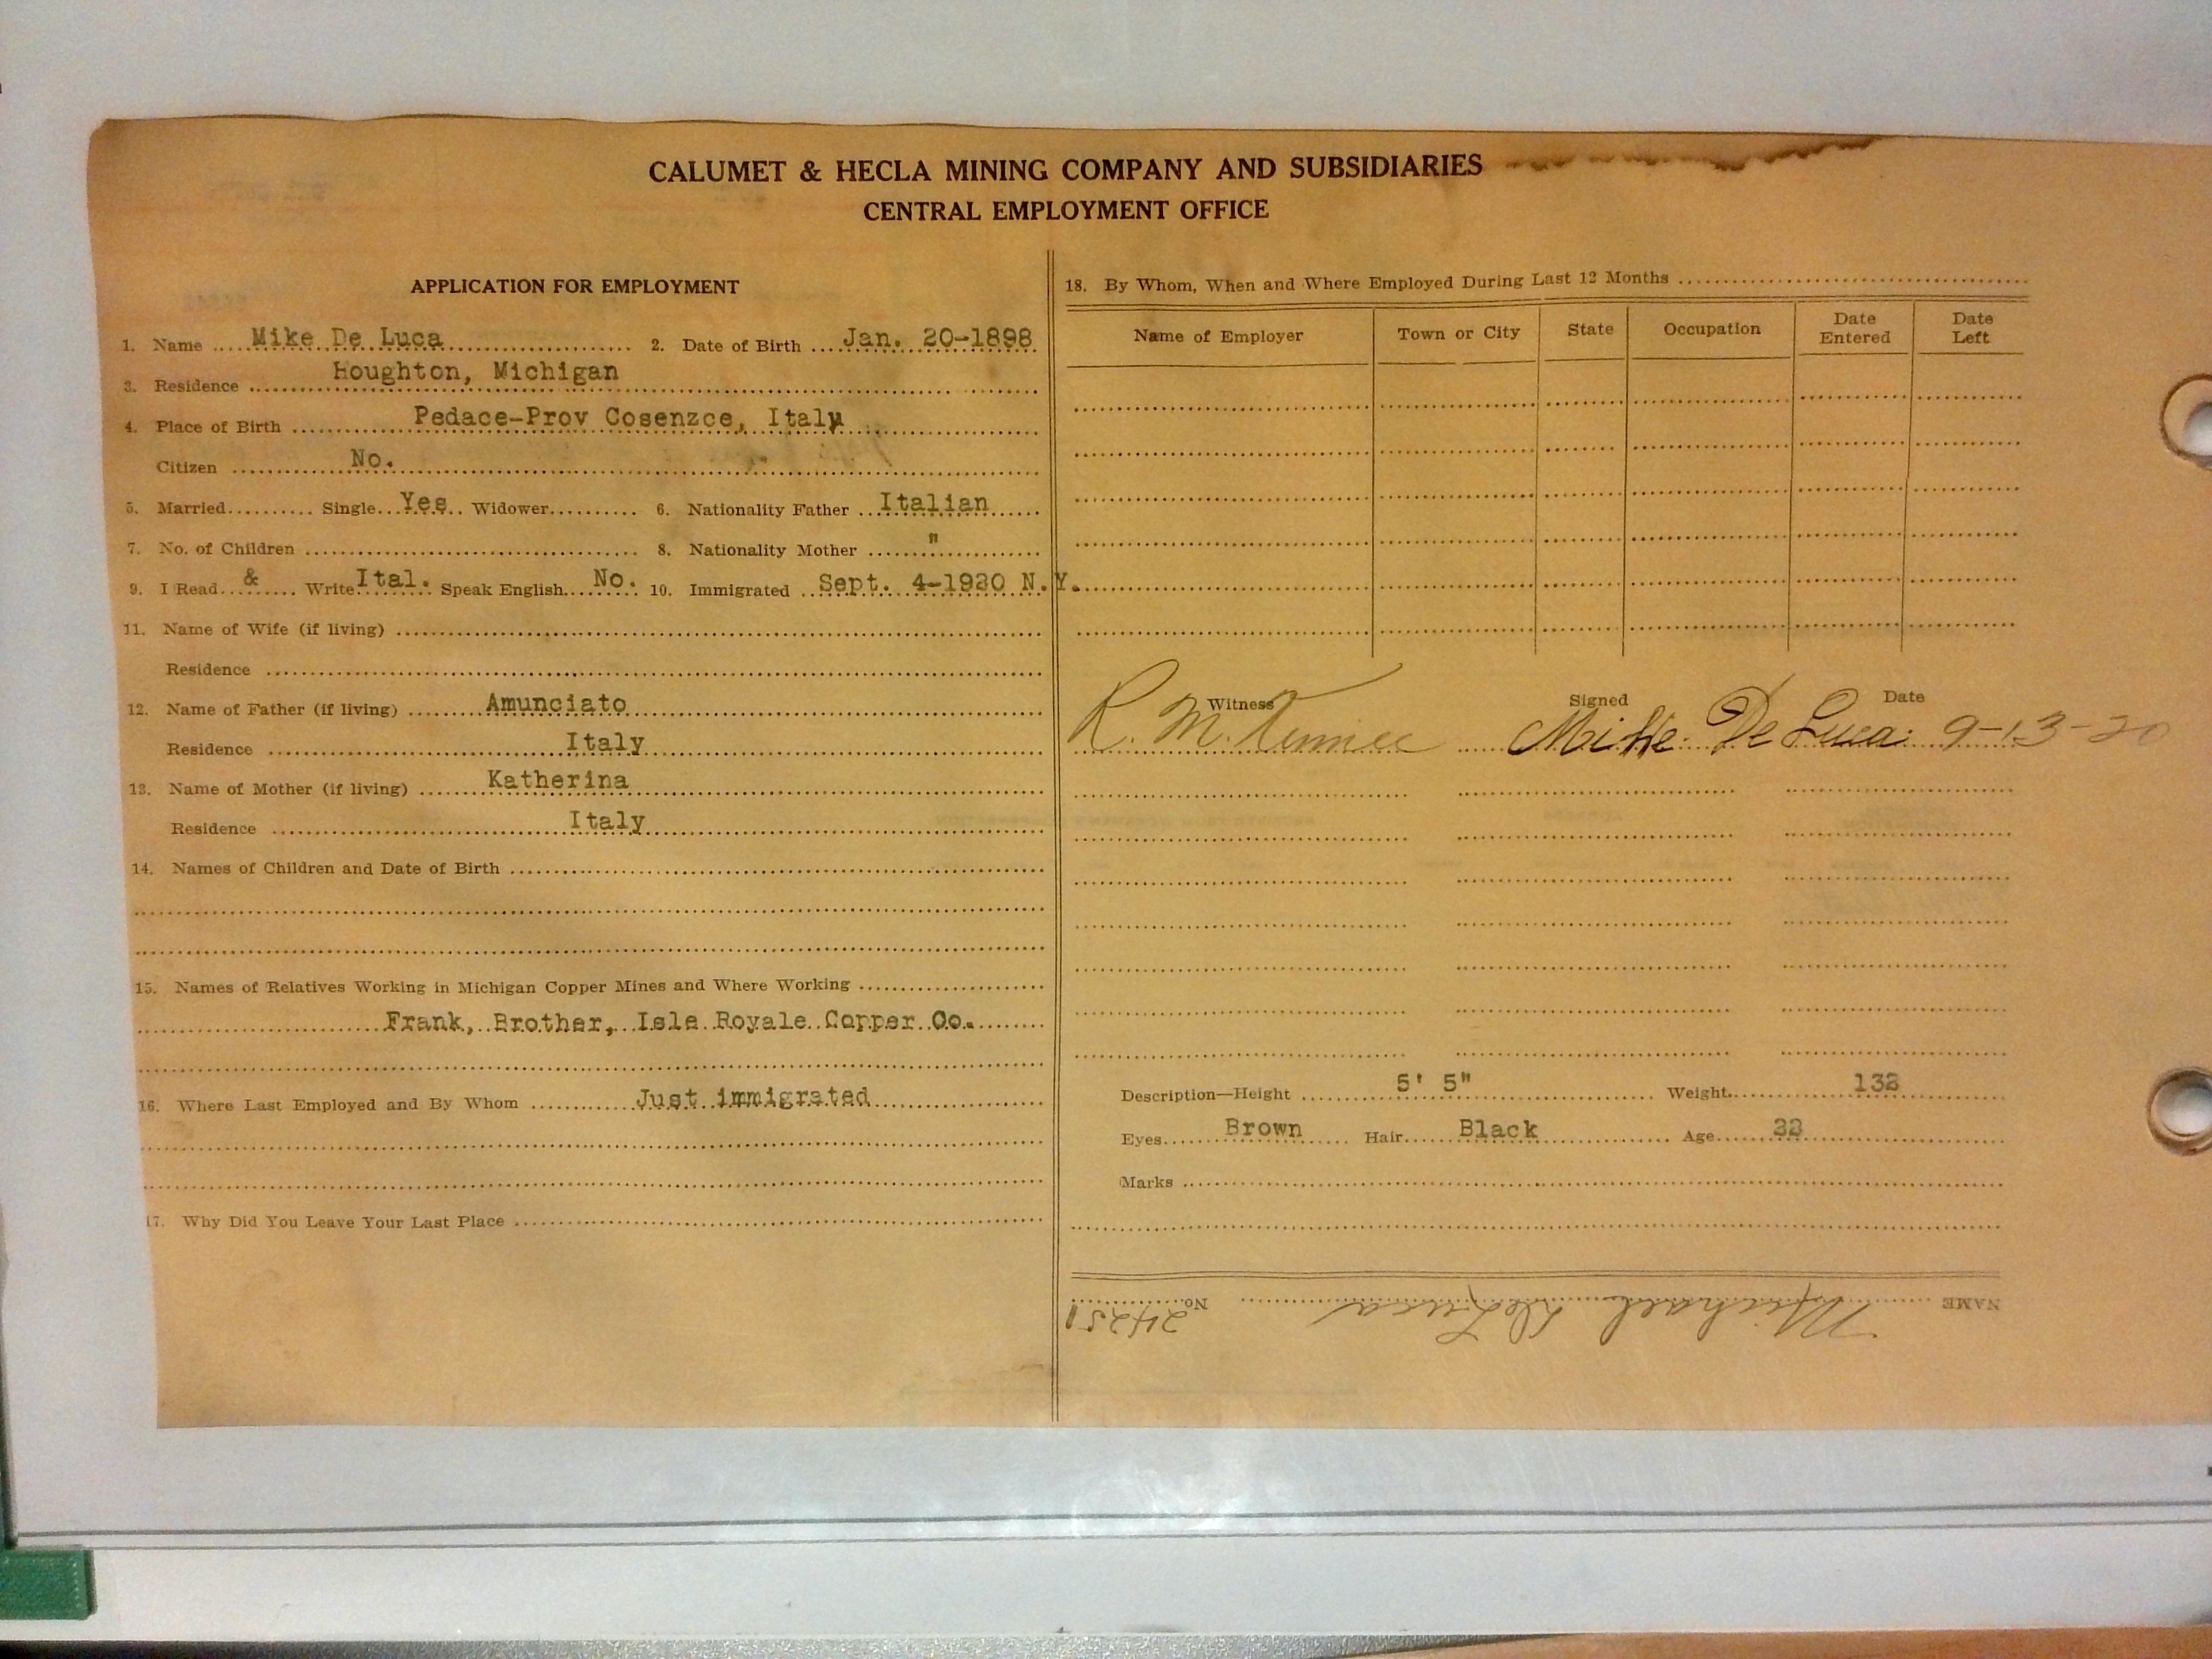 CALUMET & HECLA MINING COMPANY AND SUBSIDIARIES
CENTRAL EMPLOYMENT OFFICE
APPLICATION FOR EMPLOYMENT
1. Name Mike De Luca 2. Date of Birth Jan. 20-1898
3. Residence Houghton, Michigan
4. Place of Birth Pedace-Prov Cosenzce, Italy
Citizen No.
5. Married Single Yes Widower 6. Nationality Father Italian
7. No. of Children 8. Nationality Mother "
9. I Read & Write Ital. Speak English No. 10. Immigrated Sept. 4-1920 N.Y.
11. Name of Wife (if living)
Residence
12. Name of Father (if living) Amunciato
Residence Italy
13. Name of Mother (if living) Katherina
Residence Italy
14. Names of Children and Date of Birth
15. Names of Relatives Working in Michigan Copper Mines and Where Working
Frank, Brother, Isle Royale Copper Co.
16. Where Last Employed and By Whom Just immigrated
17. Why Did You Leave Your Last Place
18. By Whom, When and Where Employed During Last 12 Months
Name of Employer Town or City State Occupation Date Entered Date Left
Witness Signed Date
R. M. Mike De Luca 9-13-20
Description—Height 5' 5" Weight 132
Eyes Brown Hair Black Age 22
Marks
NAME Michael DeLuca No. 24251